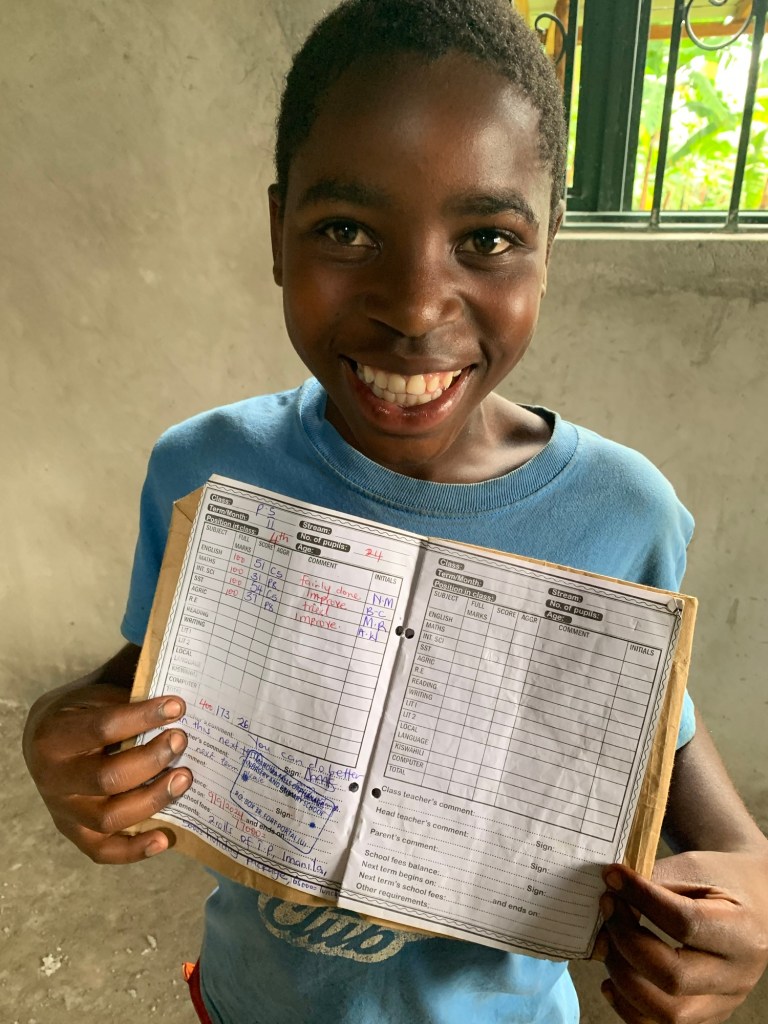 Class: P.5
Term/Month: II Stream:
Position in class: 4th No. of pupils: 24
Age:
SUBJECT FULL MARKS SCORE AGGR COMMENT INITIALS
ENGLISH 100 51 C6 fairly done N.M
MATHS 100 31 P8 Improve B-C
INT. SCI 100 54 C6 tried M.R
SST 100 37 P8 Improve. A.W
AGRIC
R.E
READING
WRITING
LIT 1
LIT 2
LOCAL
LANGUAGE
KISWAHILI
COMPUTER
400 173 26
You can do better
next term
Sign:
Sign:
and ends on:
2 rolls of T.P, 1manila,
Class:
Term/Month: Stream:
Position in class: No. of pupils:
Age:
SUBJECT FULL MARKS SCORE AGGR COMMENT INITIALS
ENGLISH
MATHS
INT. SCI
SST
AGRIC
R.E
READING
WRITING
LIT 1
LIT 2
LOCAL
LANGUAGE
KISWAHILI
COMPUTER
TOTAL
Class teacher's comment:
Sign:
Head teacher's comment:
Sign:
Parent's comment:
Sign:
School fees balance:
Next term begins on: and ends on:
Next term's school fees:
Other requirements:
Club